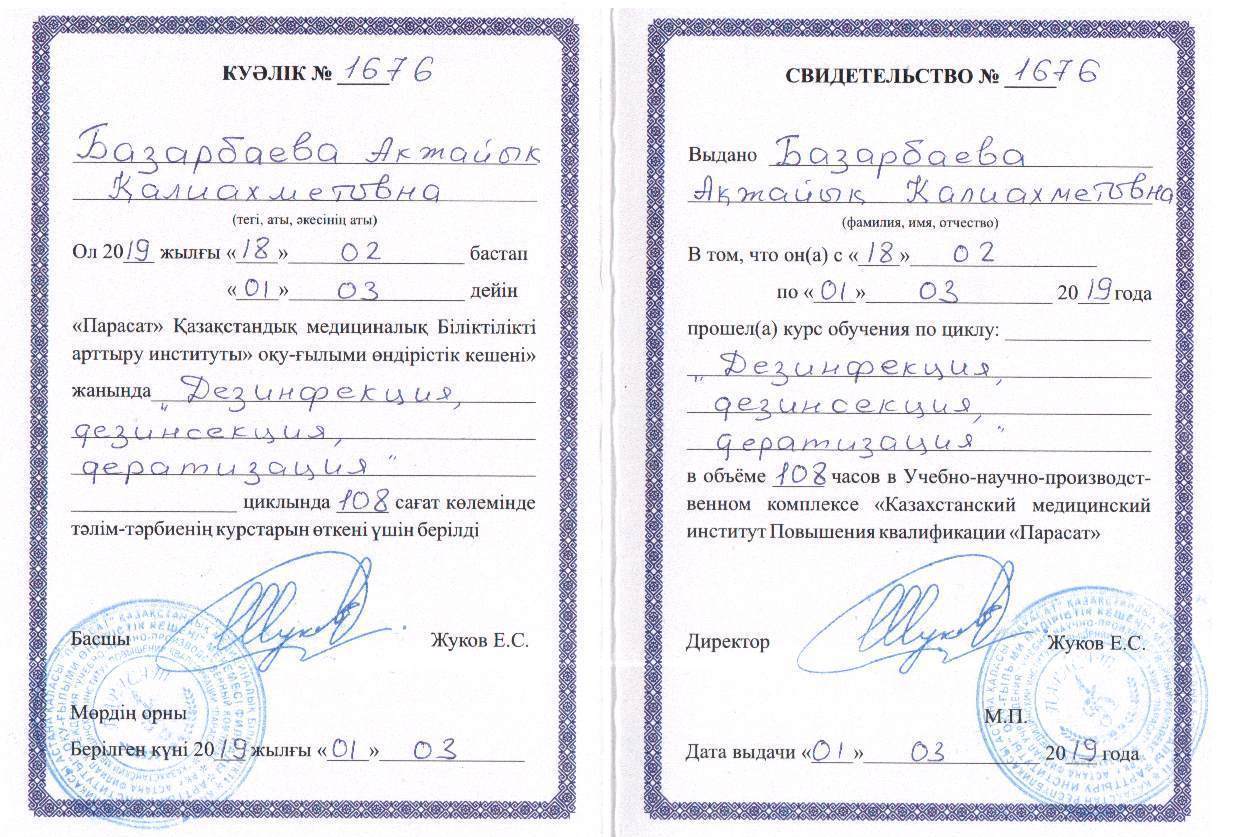 КУӘЛІК № 1676
Базарбаева Ақжайық
Қалиахметовна
(тегі, аты, әкесінің аты)
Ол 2019 жылғы «18» 02 бастап
«01» 03 дейін
«Парасат» Қазақстандық медициналық Біліктілікті
арттыру институты» оқу-ғылыми өндірістік кешені»
жанында „Дезинфекция,
дезинсекция,
дератизация"
циклында 108 сағат көлемінде
тәлім-тәрбиенің курстарын өткені үшін берілді
Басшы Жуков Е.С.
Мөрдің орны
Берілген күні 2019 жылғы «01» 03
СВИДЕТЕЛЬСТВО № 1676
Выдано Базарбаева
Ақжайық Қалиахметовна
(фамилия, имя, отчество)
В том, что он(а) с «18» 02
по «01» 03 2019 года
прошел(а) курс обучения по циклу:
„Дезинфекция,
дезинсекция,
дератизация"
в объёме 108 часов в Учебно-научно-производст-
венном комплексе «Казахстанский медицинский
институт Повышения квалификации «Парасат»
Директор Жуков Е.С.
М.П.
Дата выдачи «01» 03 2019 года